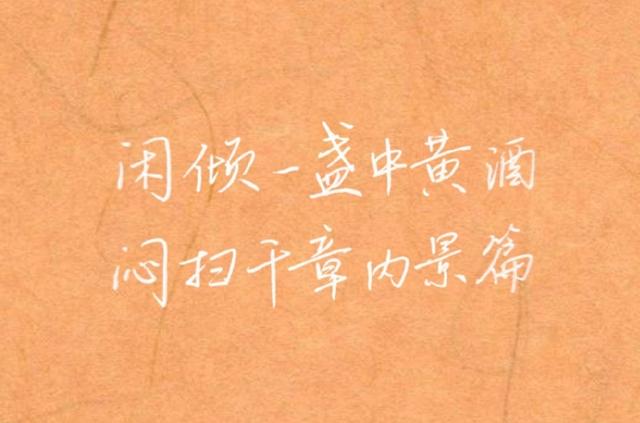 闲倾一盏中黄酒
闷扫千章内景篇